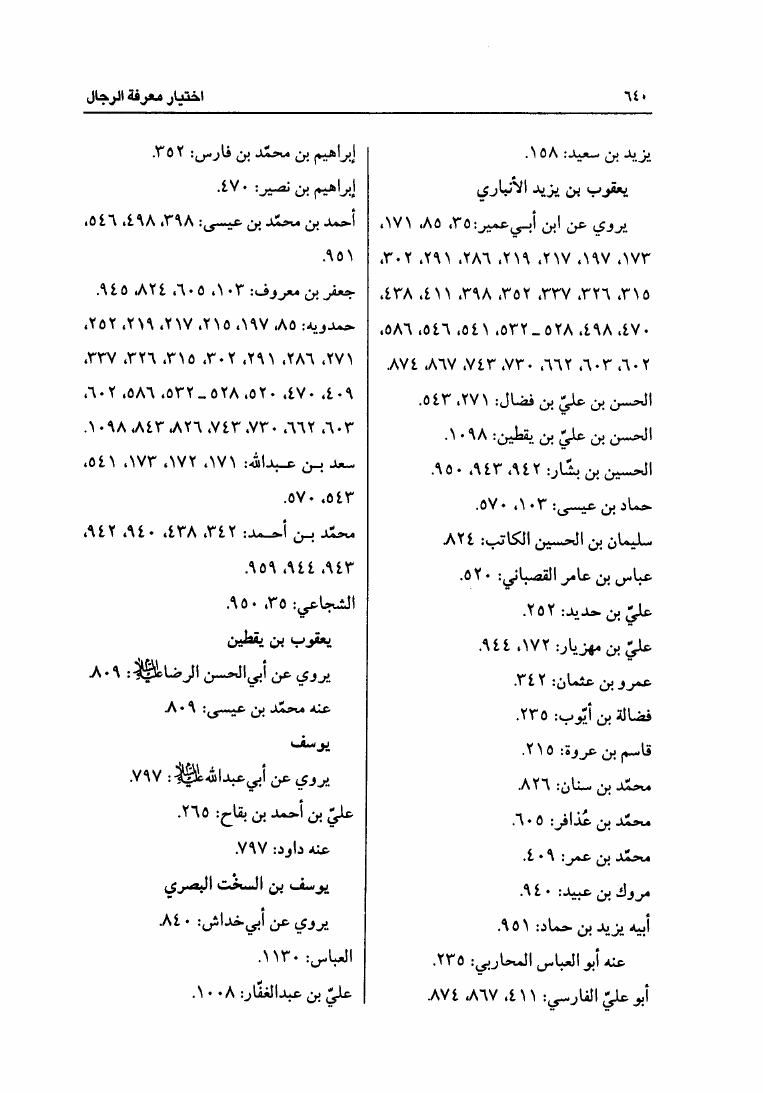 ٦٤٠
اختيار معرفة الرجال
يزيد بن سعيد: ١٥٨.
يعقوب بن يزيد الأنباري
يروي عن ابن أبي‌عمير:٣٥، ٨٥، ١٧١،
١٧٣، ١٩٧، ٢١٧، ٢١٩، ٢٨٦، ٢٩١، ٣٠٢،
٣١٥، ٣٢٦، ٣٣٧، ٣٥٢، ٣٩٨، ٤١١، ٤٣٨،
٤٧٠، ٤٩٨، ٥٢٨ ـ ٥٣٢، ٥٤١، ٥٤٦، ٥٨٦،
٦٠٢، ٦٠٣، ٦٦٢، ٧٣٠، ٧٤٣، ٨٦٧، ٨٧٤.
الحسن بن عليّ بن فضال: ٢٧١، ٥٤٣.
الحسن بن علي بن يقطين: ١٠٩٨.
الحسين بن بشّار: ٩٤٢، ٩٤٣، ٩٥٠.
حماد بن عيسى: ١٠٣، ٥٧٠.
سليمان بن الحسين الكاتب: ٨٢٤.
عباس بن عامر القصباني: ٥٢٠.
عليّ بن حديد: ٢٥٢.
عليّ بن مهزيار: ١٧٢، ٩٤٤.
عمرو بن عثمان: ٣٤٢.
فضالة بن أيّوب: ٢٣٥.
قاسم بن عروة: ٢١٥.
محمّد بن سنان: ٨٢٦.
محمّد بن عُذافر: ٦٠٥.
محمّد بن عمر: ٤٠٩.
مروك بن عبيد: ٩٤٠.
أبيه يزيد بن حماد: ٩٥١.
عنه أبو العباس المحاربي: ٢٣٥.
أبو عليّ الفارسي: ٤١١، ٨٦٧، ٨٧٤.
إبراهيم بن محمّد بن فارس: ٣٥٢.
إبراهيم بن نصير: ٤٧٠.
أحمد بن محمّد بن عيسى: ٣٩٨، ٤٩٨، ٥٤٦،
٩٥١.
جعفر بن معروف: ١٠٣، ٦٠٥، ٨٢٤، ٩٤٥.
حمدويه: ٨٥، ١٩٧، ٢١٥، ٢١٧، ٢١٩، ٢٥٢،
٢٧١، ٢٨٦، ٢٩١، ٣٠٢، ٣١٥، ٣٢٦، ٣٣٧،
٤٠٩، ٤٧٠، ٥٢٠، ٥٢٨ ـ ٥٣٢، ٥٨٦، ٦٠٢،
٦٠٣، ٦٦٢، ٧٣٠، ٧٤٣، ٨٢٦، ٨٤٣، ١٠٩٨.
سعد بـن عـبدالله: ١٧١، ١٧٢، ١٧٣، ٥٤١،
٥٤٣، ٥٧٠.
محمّد بـن أحـمد: ٣٤٢، ٤٣٨، ٩٤٠، ٩٤٢،
٩٤٣، ٩٤٤، ٩٥٩.
الشجاعي: ٣٥، ٩٥٠.
يعقوب بن يقطين
يروي عن أبي‌الحسن الرضا عليه‌السلام: ٨٠٩.
عنه محمّد بن عيسى: ٨٠٩.
يوسف
يروي عن أبي‌عبدالله عليه‌السلام: ٧٩٧.
عليّ بن أحمد بن بقاح: ٢٦٥.
عنه داود: ٧٩٧.
يوسف بن السخْت البصري
يروي عن أبي‌خداش: ٨٤٠.
العباس: ١١٣٠.
عليّ بن عبدالغفّار: ١٠٠٨.